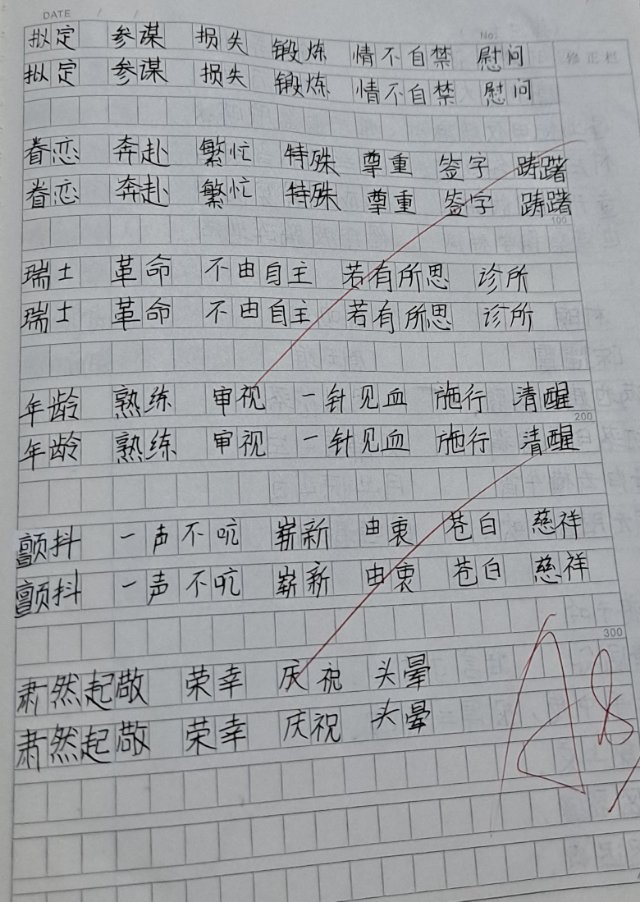 DATE / / No.
修正栏
拟定 参谋 损失 锻炼 情不自禁 慰问
拟定 参谋 损失 锻炼 情不自禁 慰问
眷恋 奔赴 繁忙 特殊 尊重 签字 踌躇
眷恋 奔赴 繁忙 特殊 尊重 签字 踌躇
100
瑞士 革命 不由自主 若有所思 诊所
瑞士 革命 不由自主 若有所思 诊所
年龄 熟练 审视 一针见血 施行 清醒
200
年龄 熟练 审视 一针见血 施行 清醒
颤抖 一声不吭 崭新 由衷 苍白 慈祥
颤抖 一声不吭 崭新 由衷 苍白 慈祥
300
肃然起敬 荣幸 庆祝 头晕
肃然起敬 荣幸 庆祝 头晕